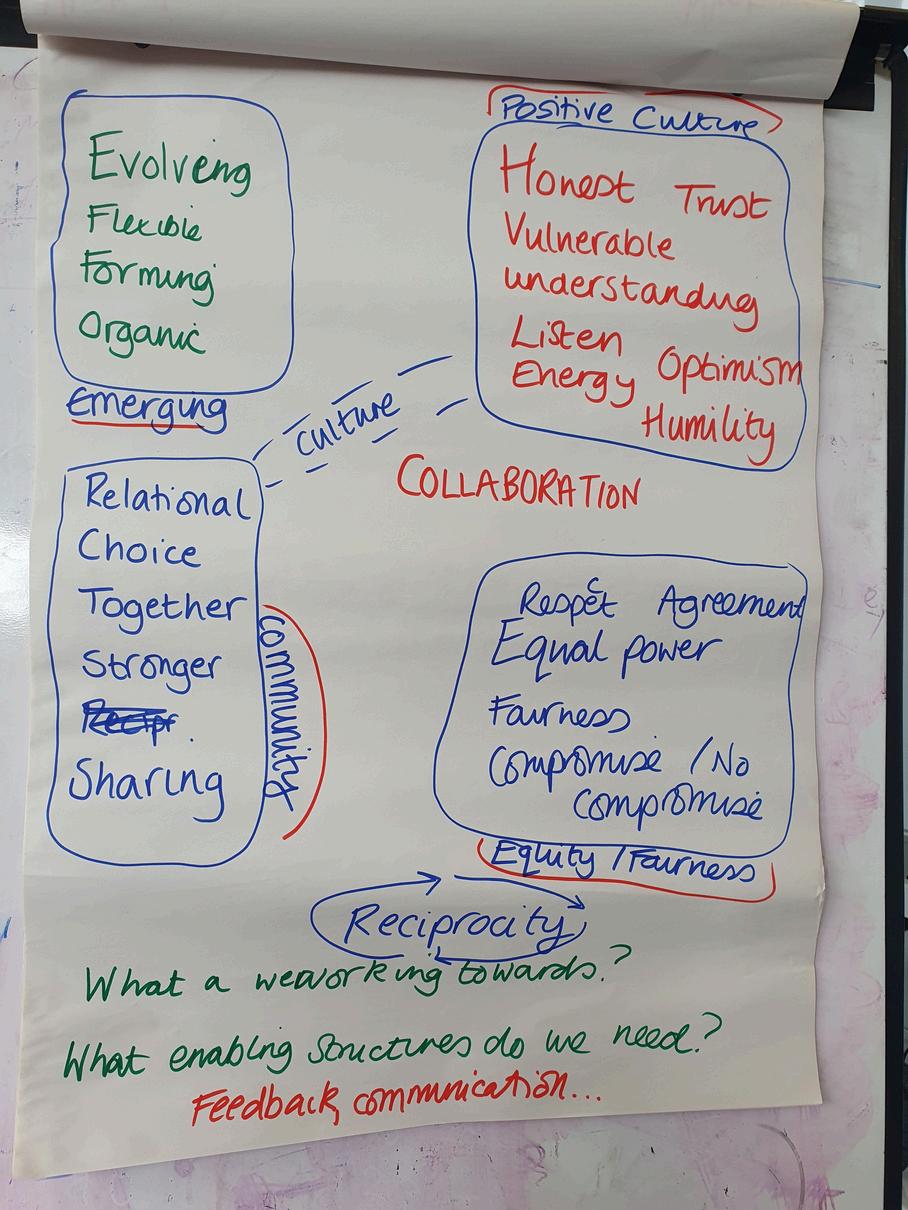 Evolveing
Flexible
Forming
Organic
Emerging
Positive Culture
Honest Trust
Vulnerable
understanding
Listen
Optimism
Energy
Humility
culture
COLLABORATION
Relational
Choice
Together
Stronger
Recipr.
Sharing
community
Respect Agreement
Equal power
Fairness
Compromise / No
compromise
Equity / Fairness
Reciprocity
What a weworking towards.?
What enabling structures do we need?
Feedback, communication...